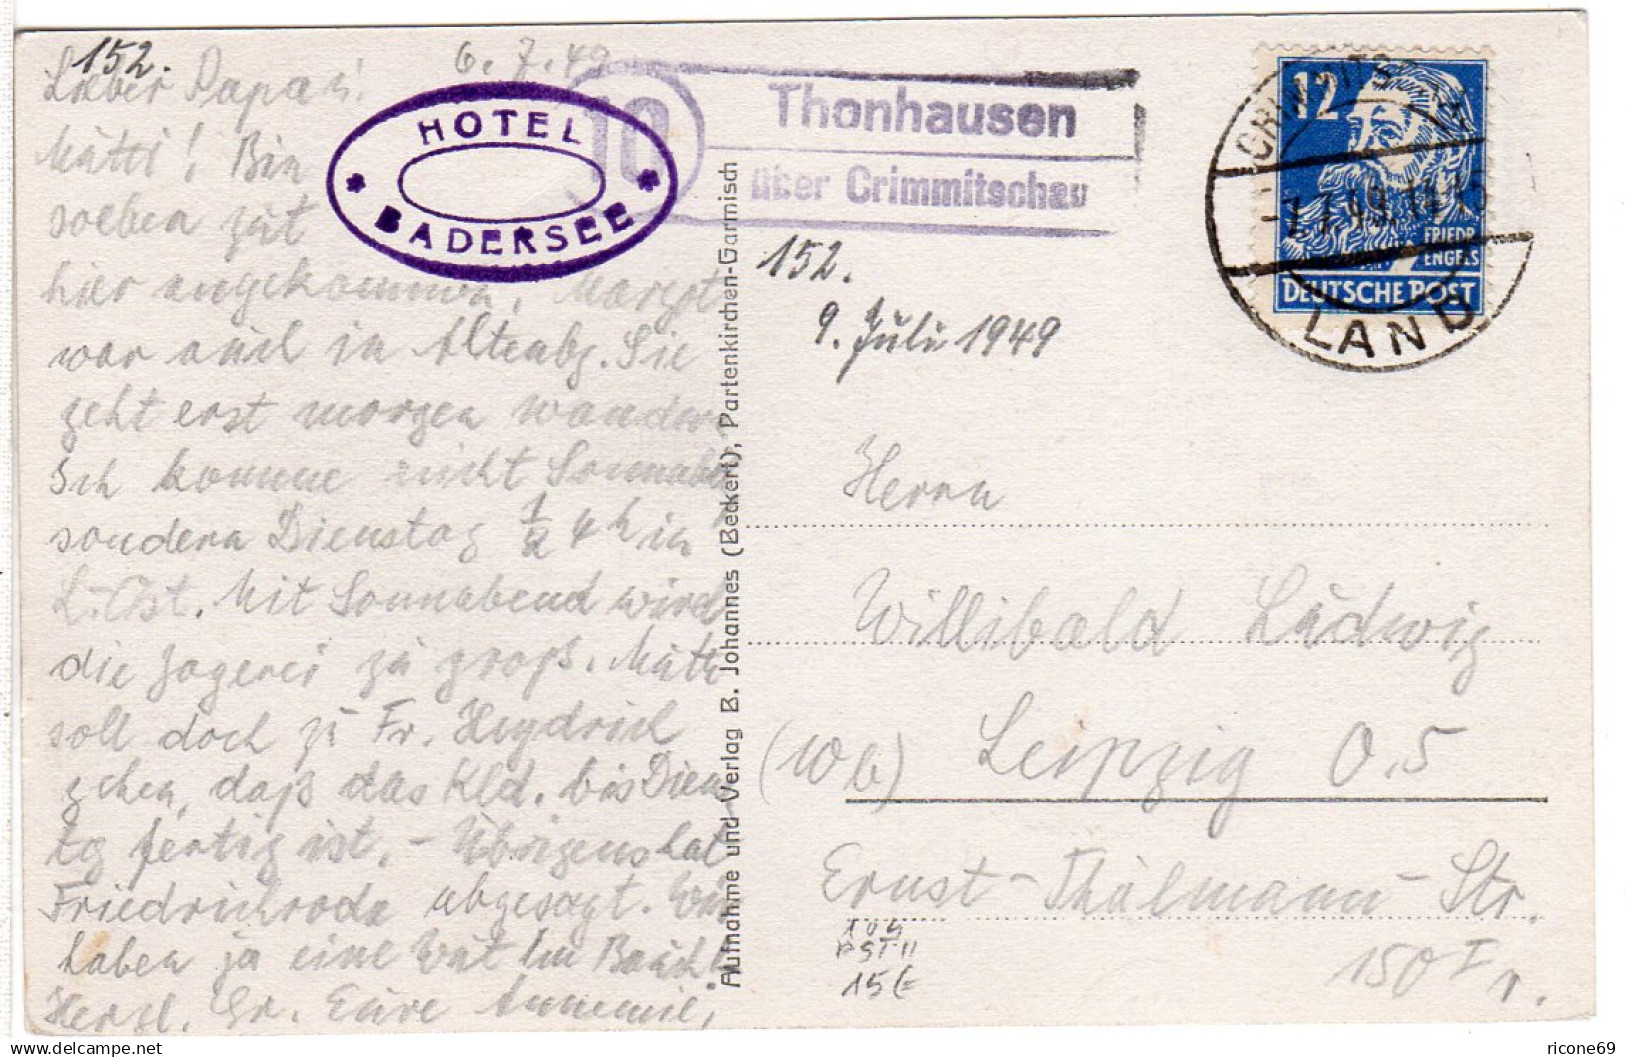 152.
6. 7. 49
Lieber Papa u.
Mutti! Bin
soeben gut
hier angekommen, Margot
war auch in Altenbg. Sie
geht erst morgen wandern
Ich komme nicht Sonnabd.
sondern Dienstag 1/2 4 h in
L.-Ost. Mit Sonnabend wird
die Jagerei zu groß. Mutti
soll doch zu Fr. Heydrich
gehen, daß das Kld. bis Diens
tg fertig ist. - Übrigens hat
Friedrichroda abgesagt. Wir
haben ja eine Wut im Bauch!
Herzl. Gr. Eure Annemie.
HOTEL
* BADERSEE *
10
Thonhausen
über Crimmitschau
Aufnahme und Verlag B. Johannes (Beckert), Partenkirchen-Garmisch
12
FRIEDR
ENGELS
DEUTSCHE POST
-7.7.49.
LAND
152.
9. Juli 1949
Herrn
Willibald Ludwig
(10b) Leipzig O.5
Ernst-Thälmann-Str.
150 I r.
15€
ricone69